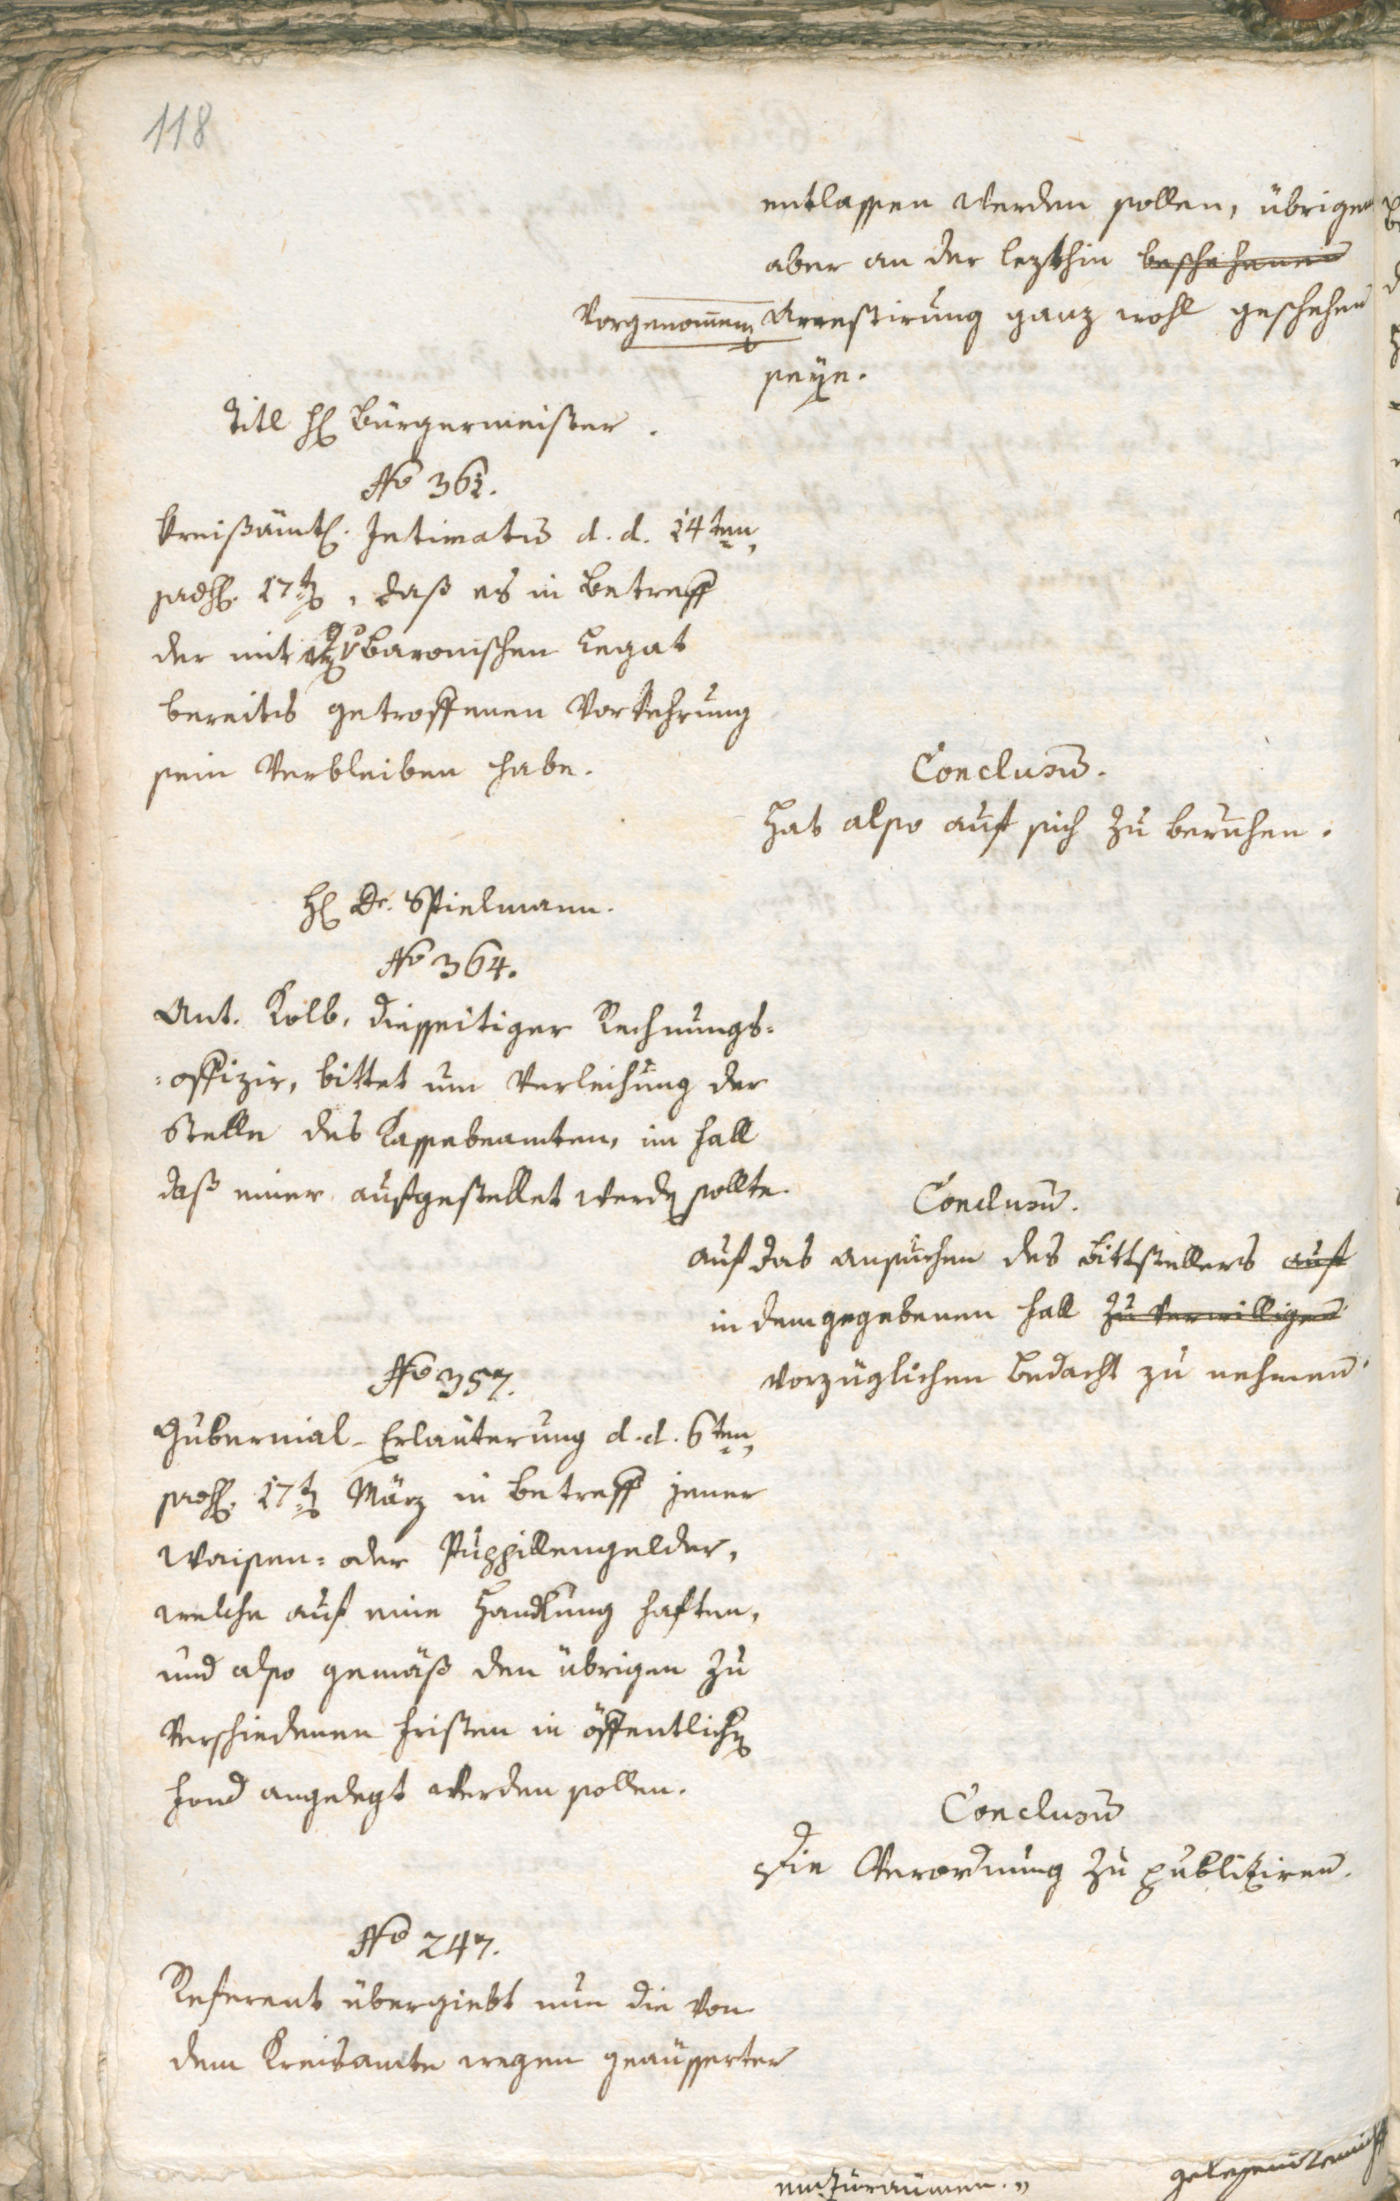 118
entlassen werden sollen, übrigens
aber an der lezthin beschehenen
vorgenommen Arrestirung ganz wohl geschehen
seÿe.
Titl H Bürgermeister.
No 361.
Kreisämtl. Intimatum d. d. 14ten,
17t, daß es in Betreff
der mit Baronischen Legat
bereits getroffenen Vorkehrung
sein Verbleiben habe.
Conclusum.
Hat also auf sich zu beruhen.
H Dr. Spielmann.
No 364.
Ant. Kolb, diesseitiger Rechnungs-
-offizir, bittet um Verleihung der
Stelle des Kassebeamten, im Fall
daß einer aufgestellet werden sollte.
Conclusum.
auf das Ansuchen des Bittstellers auf
in dem gegebenen Fall zu verwilligen
vorzüglichen Bedacht zu nehmen.
No 357.
Gubernial-Erläuterung d. d. 6ten,
17t März in Betreff jener
Waisen- oder Puppillengelder,
welche auf eine Handlung haften,
und also gemäß den übrigen zu
verschiedenen Fristen in öffentlichen
Fond angelegt werden sollen.
Conclusum
Die Verordnung zu publiziren.
No 247.
Referent übergiebt nun die von
dem Kreisamte wegen geäusserter
einzuräumen.